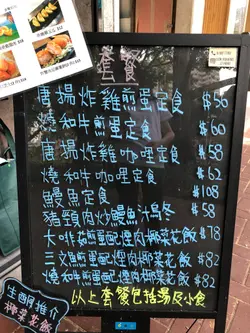 套餐
唐揚炸雞煎蛋定食 $56
燒和牛煎蛋定食 $60
唐揚炸雞咖哩定食 $58
燒和牛咖哩定食 $62
鰻魚定食 $108
豬頸肉炒鰻魚汁烏冬 $58
煎蛋配煙肉椰菜花飯 $78
三文魚煎蛋配煙肉椰菜花飯 $82
燒和牛煎蛋配煙肉椰菜花飯 $82
生酮推介
椰菜花飯
以上套餐包括湯及小食